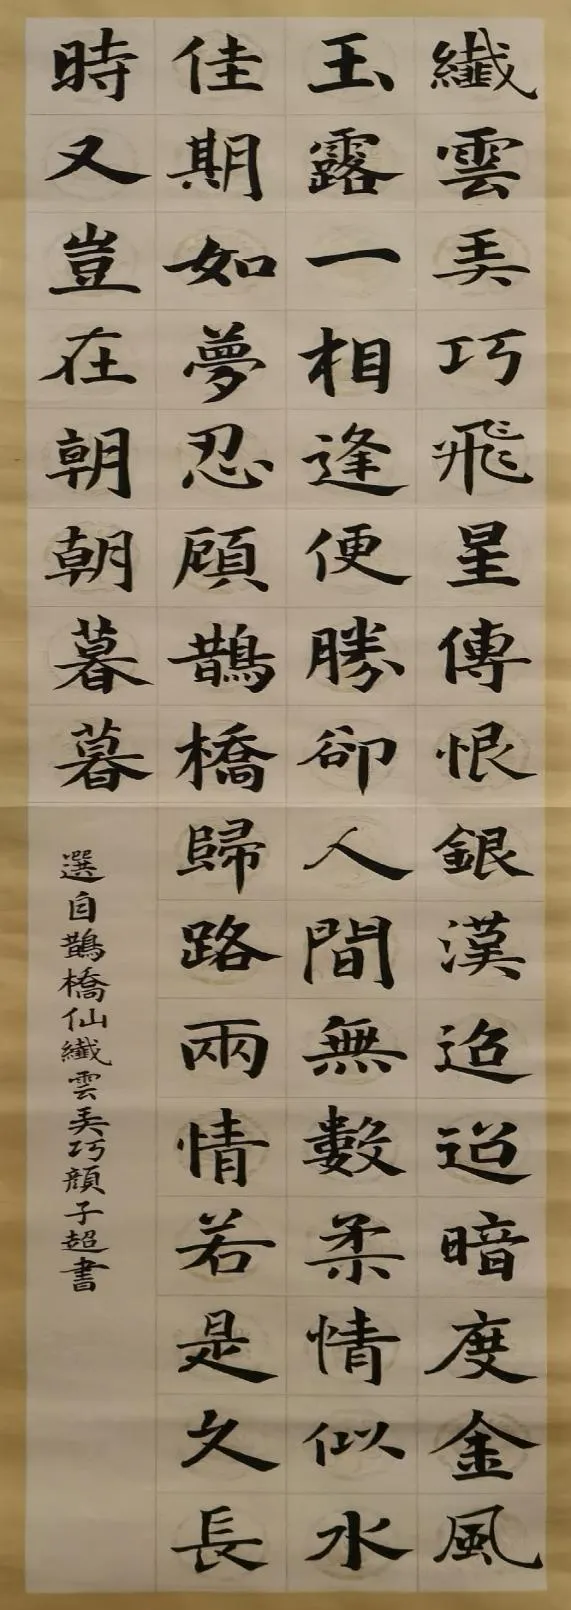 纖雲弄巧飛星傳恨銀漢迢迢暗度金風
玉露一相逢便勝卻人間無數柔情似水
佳期如夢忍頋鵲橋歸路兩情若是久長
時又豈在朝朝暮暮
選自鵲橋仙纖雲弄巧顔子超書